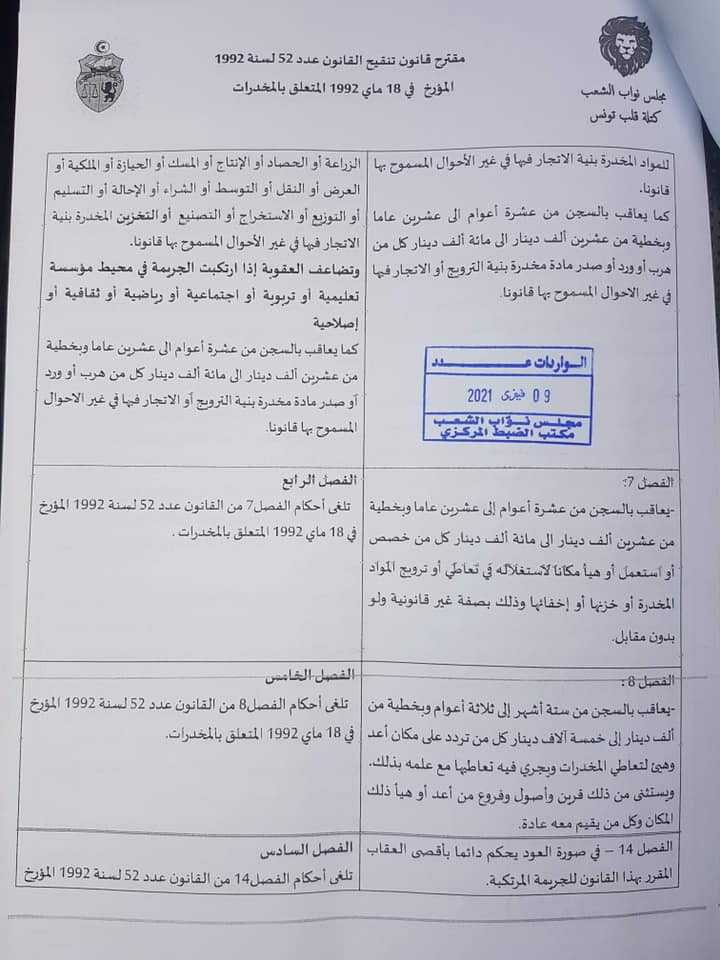 مجلس نواب الشعب
كتلة قلب تونس
مقترح قانون تنقيح القانون عدد 52 لسنة 1992
المؤرخ في 18 ماي 1992 المتعلق بالمخدرات
للمواد المخدرة بنية الاتجار فيها في غير الأحوال المسموح بها
قانونا.
كما يعاقب بالسجن من عشرة أعوام الى عشرين عاما
وبخطية من عشرين ألف دينار الى مائة ألف دينار كل من
هرب أو ورد أو صدر مادة مخدرة بنية الترويج أو الاتجار فيها
في غير الاحوال المسموح بها قانونا.
الواردات عدد
09 فيفري 2021
مجلس نواب الشعب
مكتب الضبط المركزي
الزراعة أو الحصاد أو الإنتاج أو المسك أو الحيازة أو الملكية أو
العرض أو النقل أو التوسط أو الشراء أو الإحالة أو التسليم
أو التوزيع أو الاستخراج أو التصنيع أو التخزين المخدرة بنية
الاتجار فيها في غير الأحوال المسموح بها قانونا.
وتضاعف العقوبة إذا ارتكبت الجريمة في محيط مؤسسة
تعليمية أو تربوية أو اجتماعية أو رياضية أو ثقافية أو
إصلاحية
كما يعاقب بالسجن من عشرة أعوام الى عشرين عاما وبخطية
من عشرين ألف دينار الى مائة ألف دينار كل من هرب أو ورد
أو صدر مادة مخدرة بنية الترويج أو الاتجار فيها في غير الاحوال
المسموح بها قانونا.
الفصل 7:
-يعاقب بالسجن من عشرة أعوام إلى عشرين عاما وبخطية
من عشرين ألف دينار الى مائة ألف دينار كل من خصص
أو استعمل أو هيأ مكانا لاستغلاله في تعاطي أو ترويج المواد
المخدرة أو خزنها أو إخفائها وذلك بصفة غير قانونية ولو
بدون مقابل.
الفصل الرابع
تلغى أحكام الفصل7 من القانون عدد 52 لسنة 1992 المؤرخ
في 18 ماي 1992 المتعلق بالمخدرات .
الفصل 8 :
-يعاقب بالسجن من ستة أشهر إلى ثلاثة أعوام وبخطية من
ألف دينار إلى خمسة آلاف دينار كل من تردد على مكان أعد
وهيئ لتعاطي المخدرات ويجري فيه تعاطيها مع علمه بذلك.
ويستثنى من ذلك قرين وأصول وفروع من أعد أو هيأ ذلك
المكان وكل من يقيم معه عادة.
الفصل الخامس
تلغى أحكام الفصل8 من القانون عدد 52 لسنة 1992 المؤرخ
في 18 ماي 1992 المتعلق بالمخدرات.
الفصل 14 – في صورة العود يحكم دائما بأقصى العقاب
المقرر بهذا القانون للجريمة المرتكبة.
الفصل السادس
تلغى أحكام الفصل14 من القانون عدد 52 لسنة 1992 المؤرخ